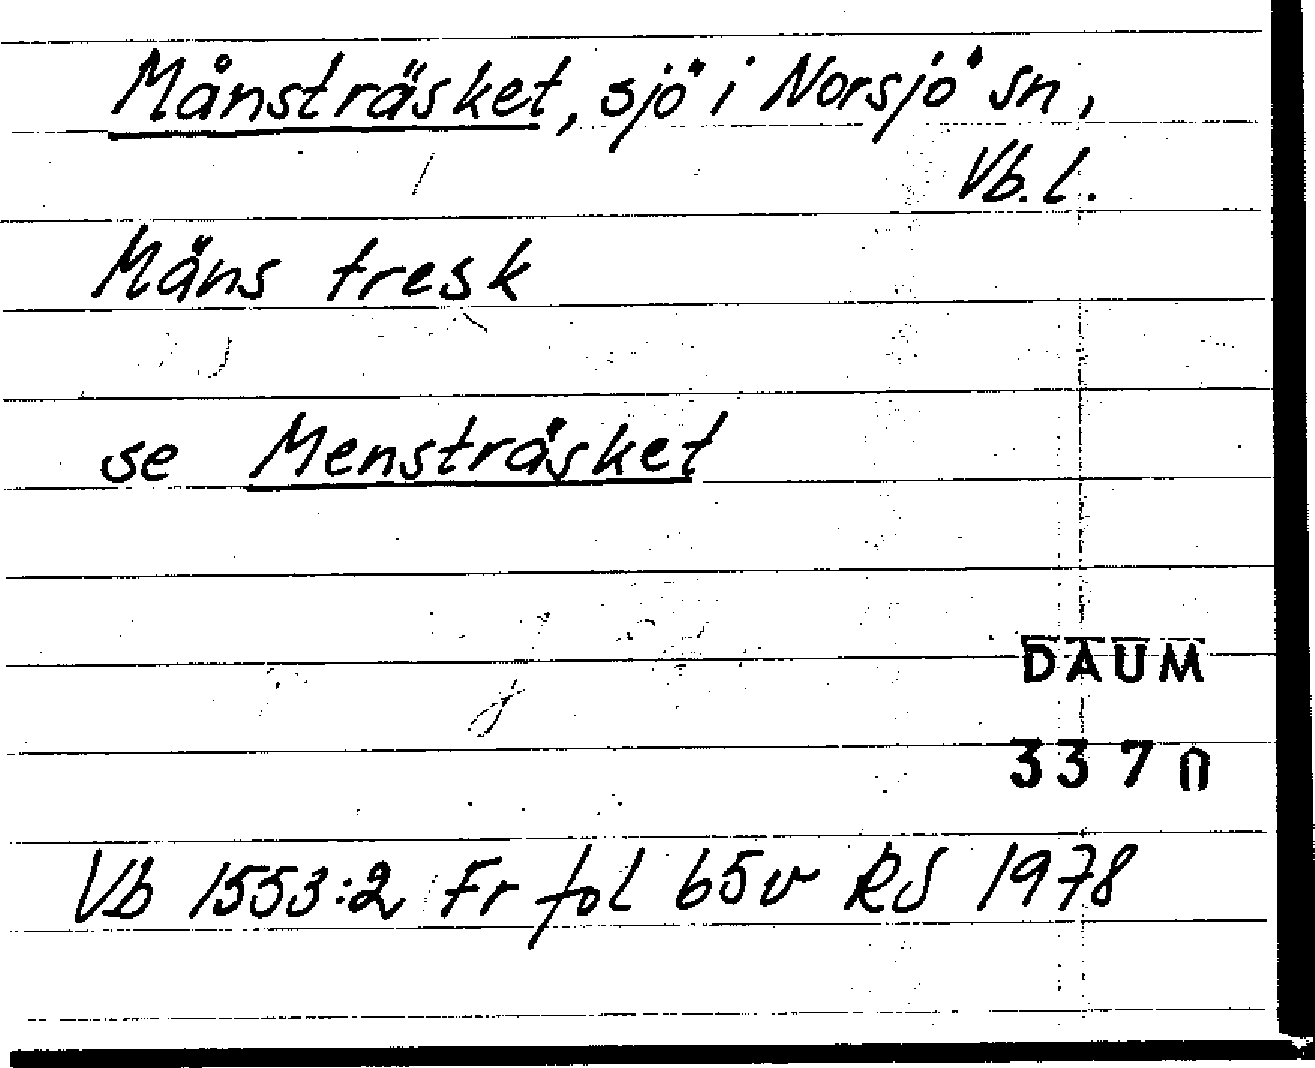 Månsträsket, sjö i Norsjö sn,
Vb.l.
Mäns tresk
se Mensträsket
DAUM
337
Vb 1553:2 Fr fol 65v RS 1978